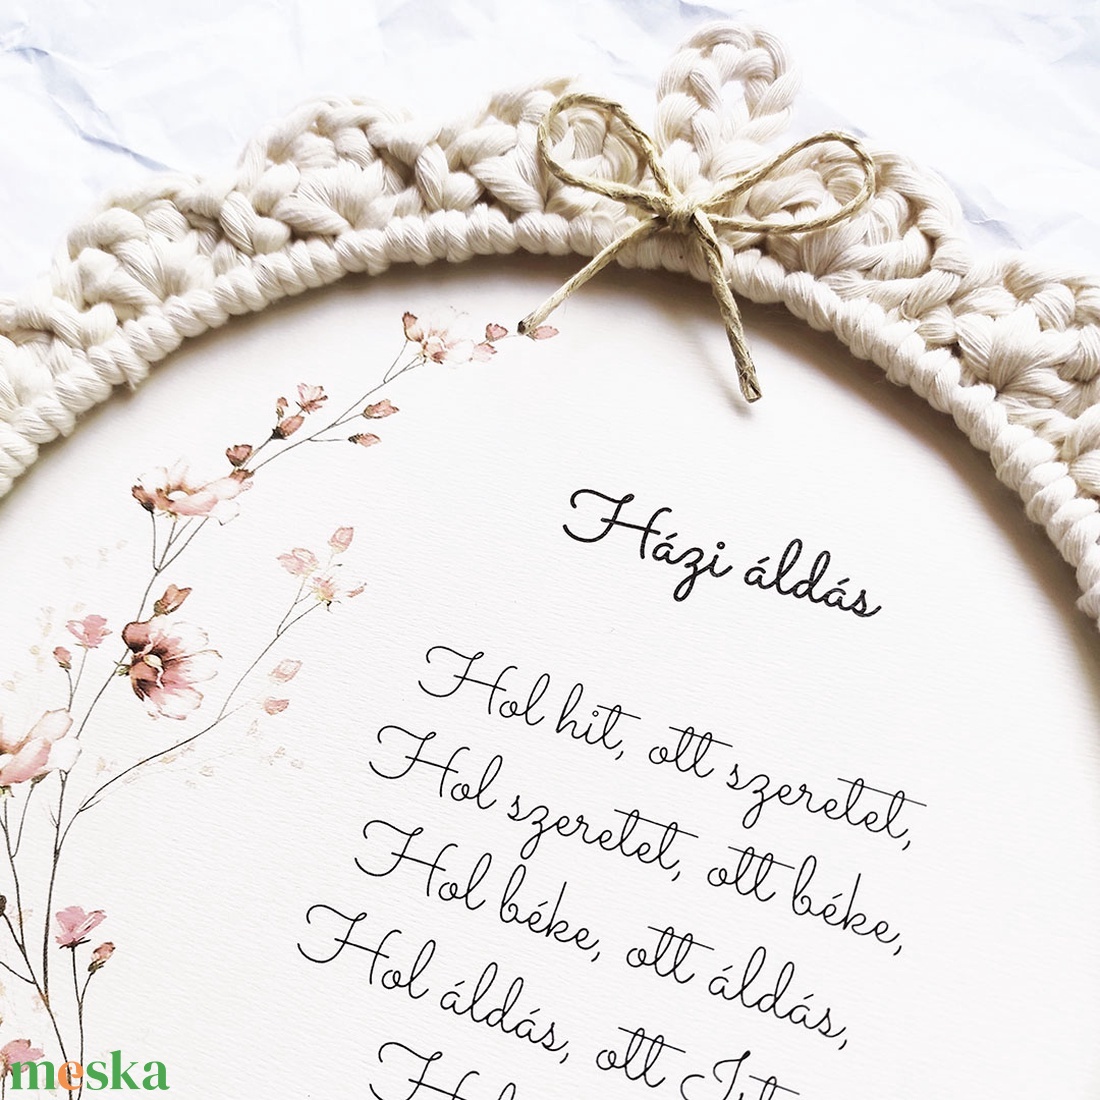 Házi áldás
Hol hit, ott szeretet,
Hol szeretet, ott béke,
Hol béke, ott áldás,
Hol áldás, ott
meska